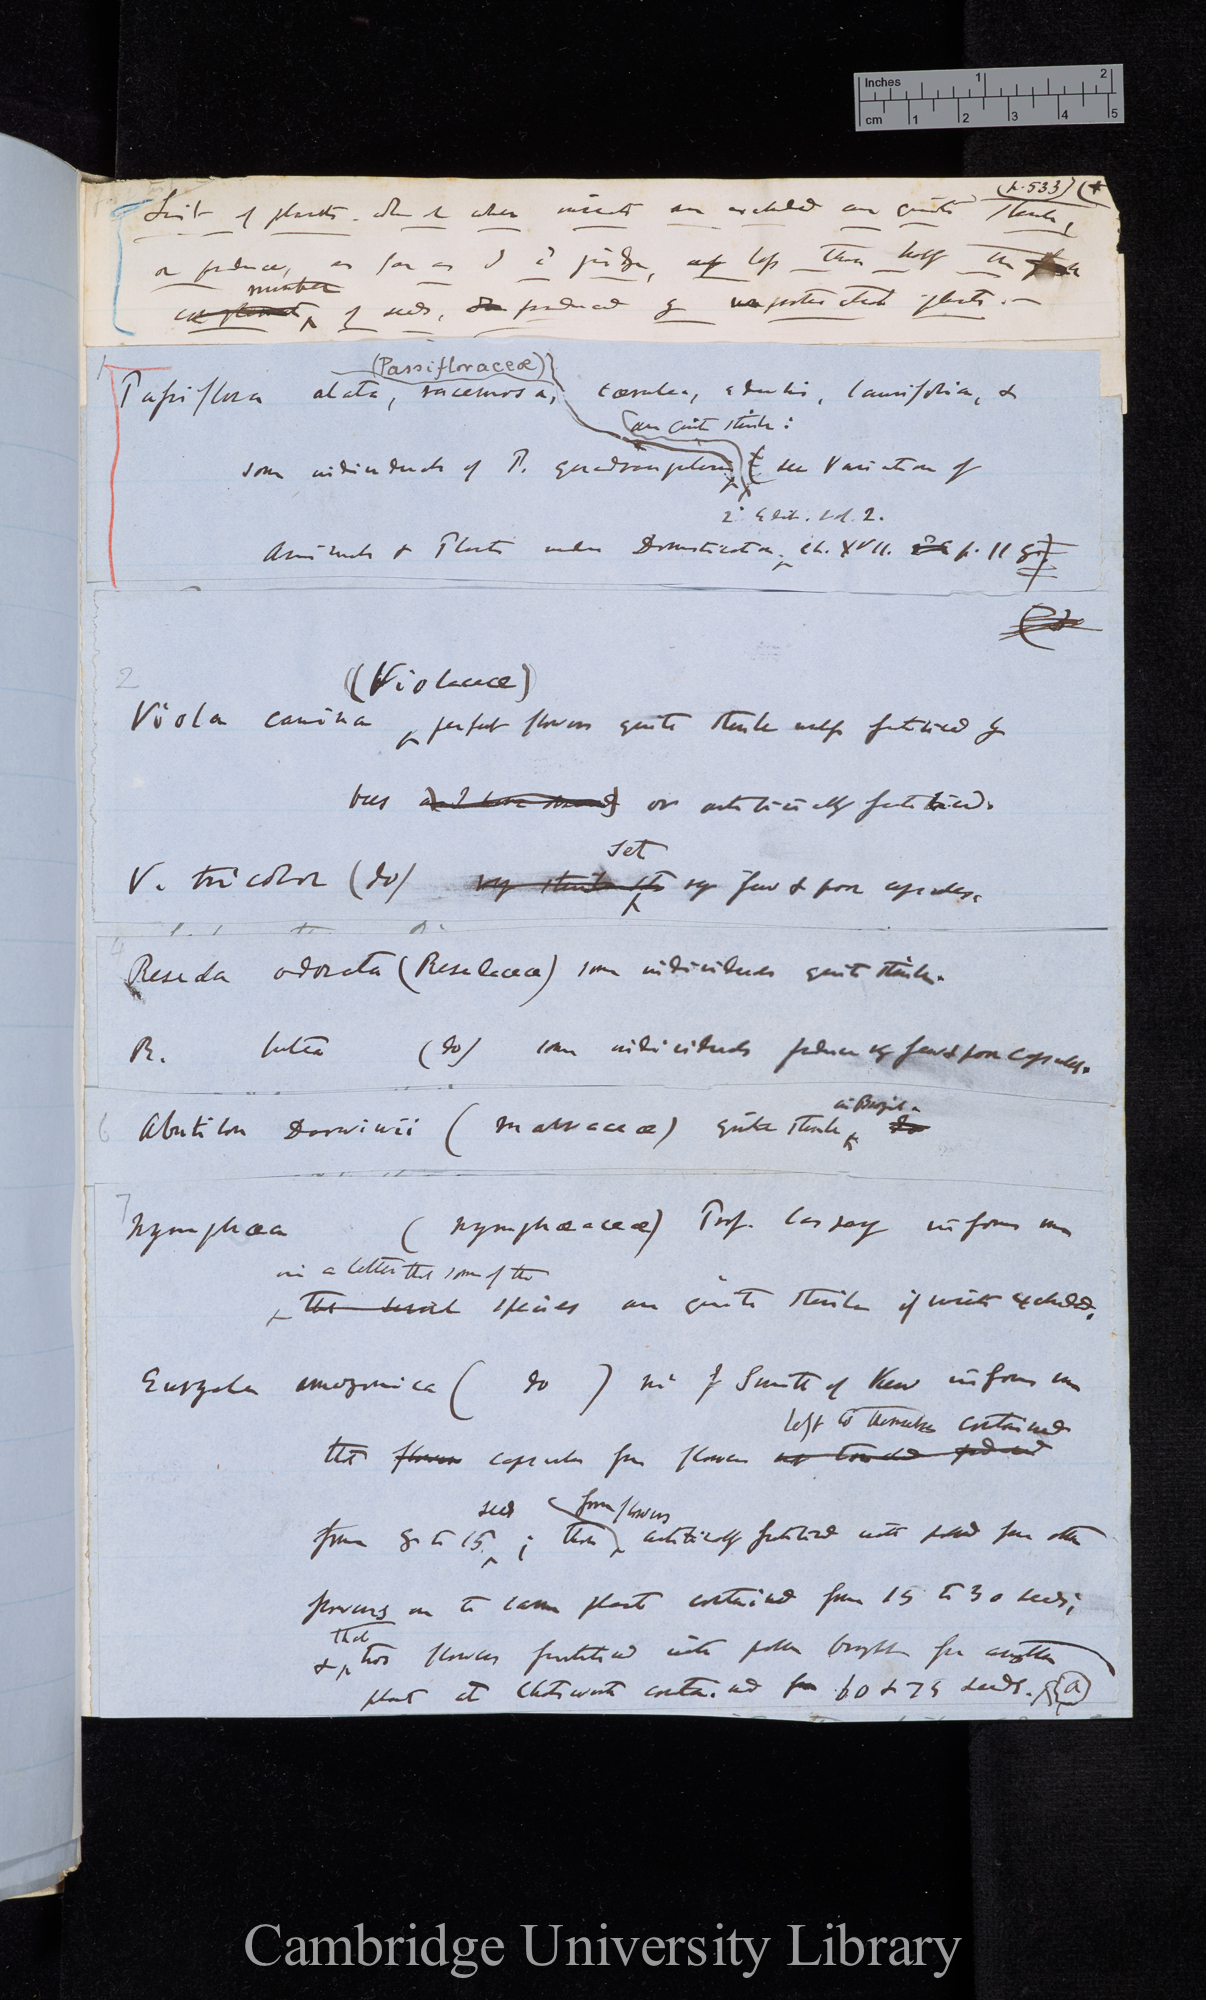 Inches 1 2
cm 1 2 3 4 5
(p. 533) (+
List of plants. which when insects are excluded are quite sterile,
or produce, as far as I can judge, less than half the
number
of seeds, produced by unprotected plants. —
1
(Passifloraceæ)
Passiflora alata, racemosa, cærulea, edulis, laurifolia, &
are quite sterile:
some individuals of P. quadrangularis see Variation of
2d Edit. vol. 2.
Animals & Plants under Domestication, ch. XVII. p. 118
2
(Violaceæ)
Viola canina perfect flowers quite sterile unless fertilised by
bees and I have or artificially fertilised.
set
V. tricolor (do) very sterile sets very few & poor capsules.
4
Reseda odorata (Resedaceæ) some individuals quite sterile.
R. lutea (do) some individuals produce very few & poor capsules.
in Brazil.
6 Abutilon Darwinii (Malvaceæ) quite sterile do
7
Nymphæa (Nymphæaceæ) Prof. Caspary informs me
in a letter that some of the
the several species are quite sterile if insects excluded.
Euryale amazonica ( do ) Mr J Smith of Kew informs me
left to themselves contained
that flowers capsules from flowers produced
seeds from flowers
from 8 to 15; those artificially fertilised with pollen from other
flowers on the same plant contained from 15 to 30 seeds;
that
& two flowers fertilised with pollen brought from another
plant at Chatsworth contained 60 & 75 seeds. (a)
Cambridge University Library